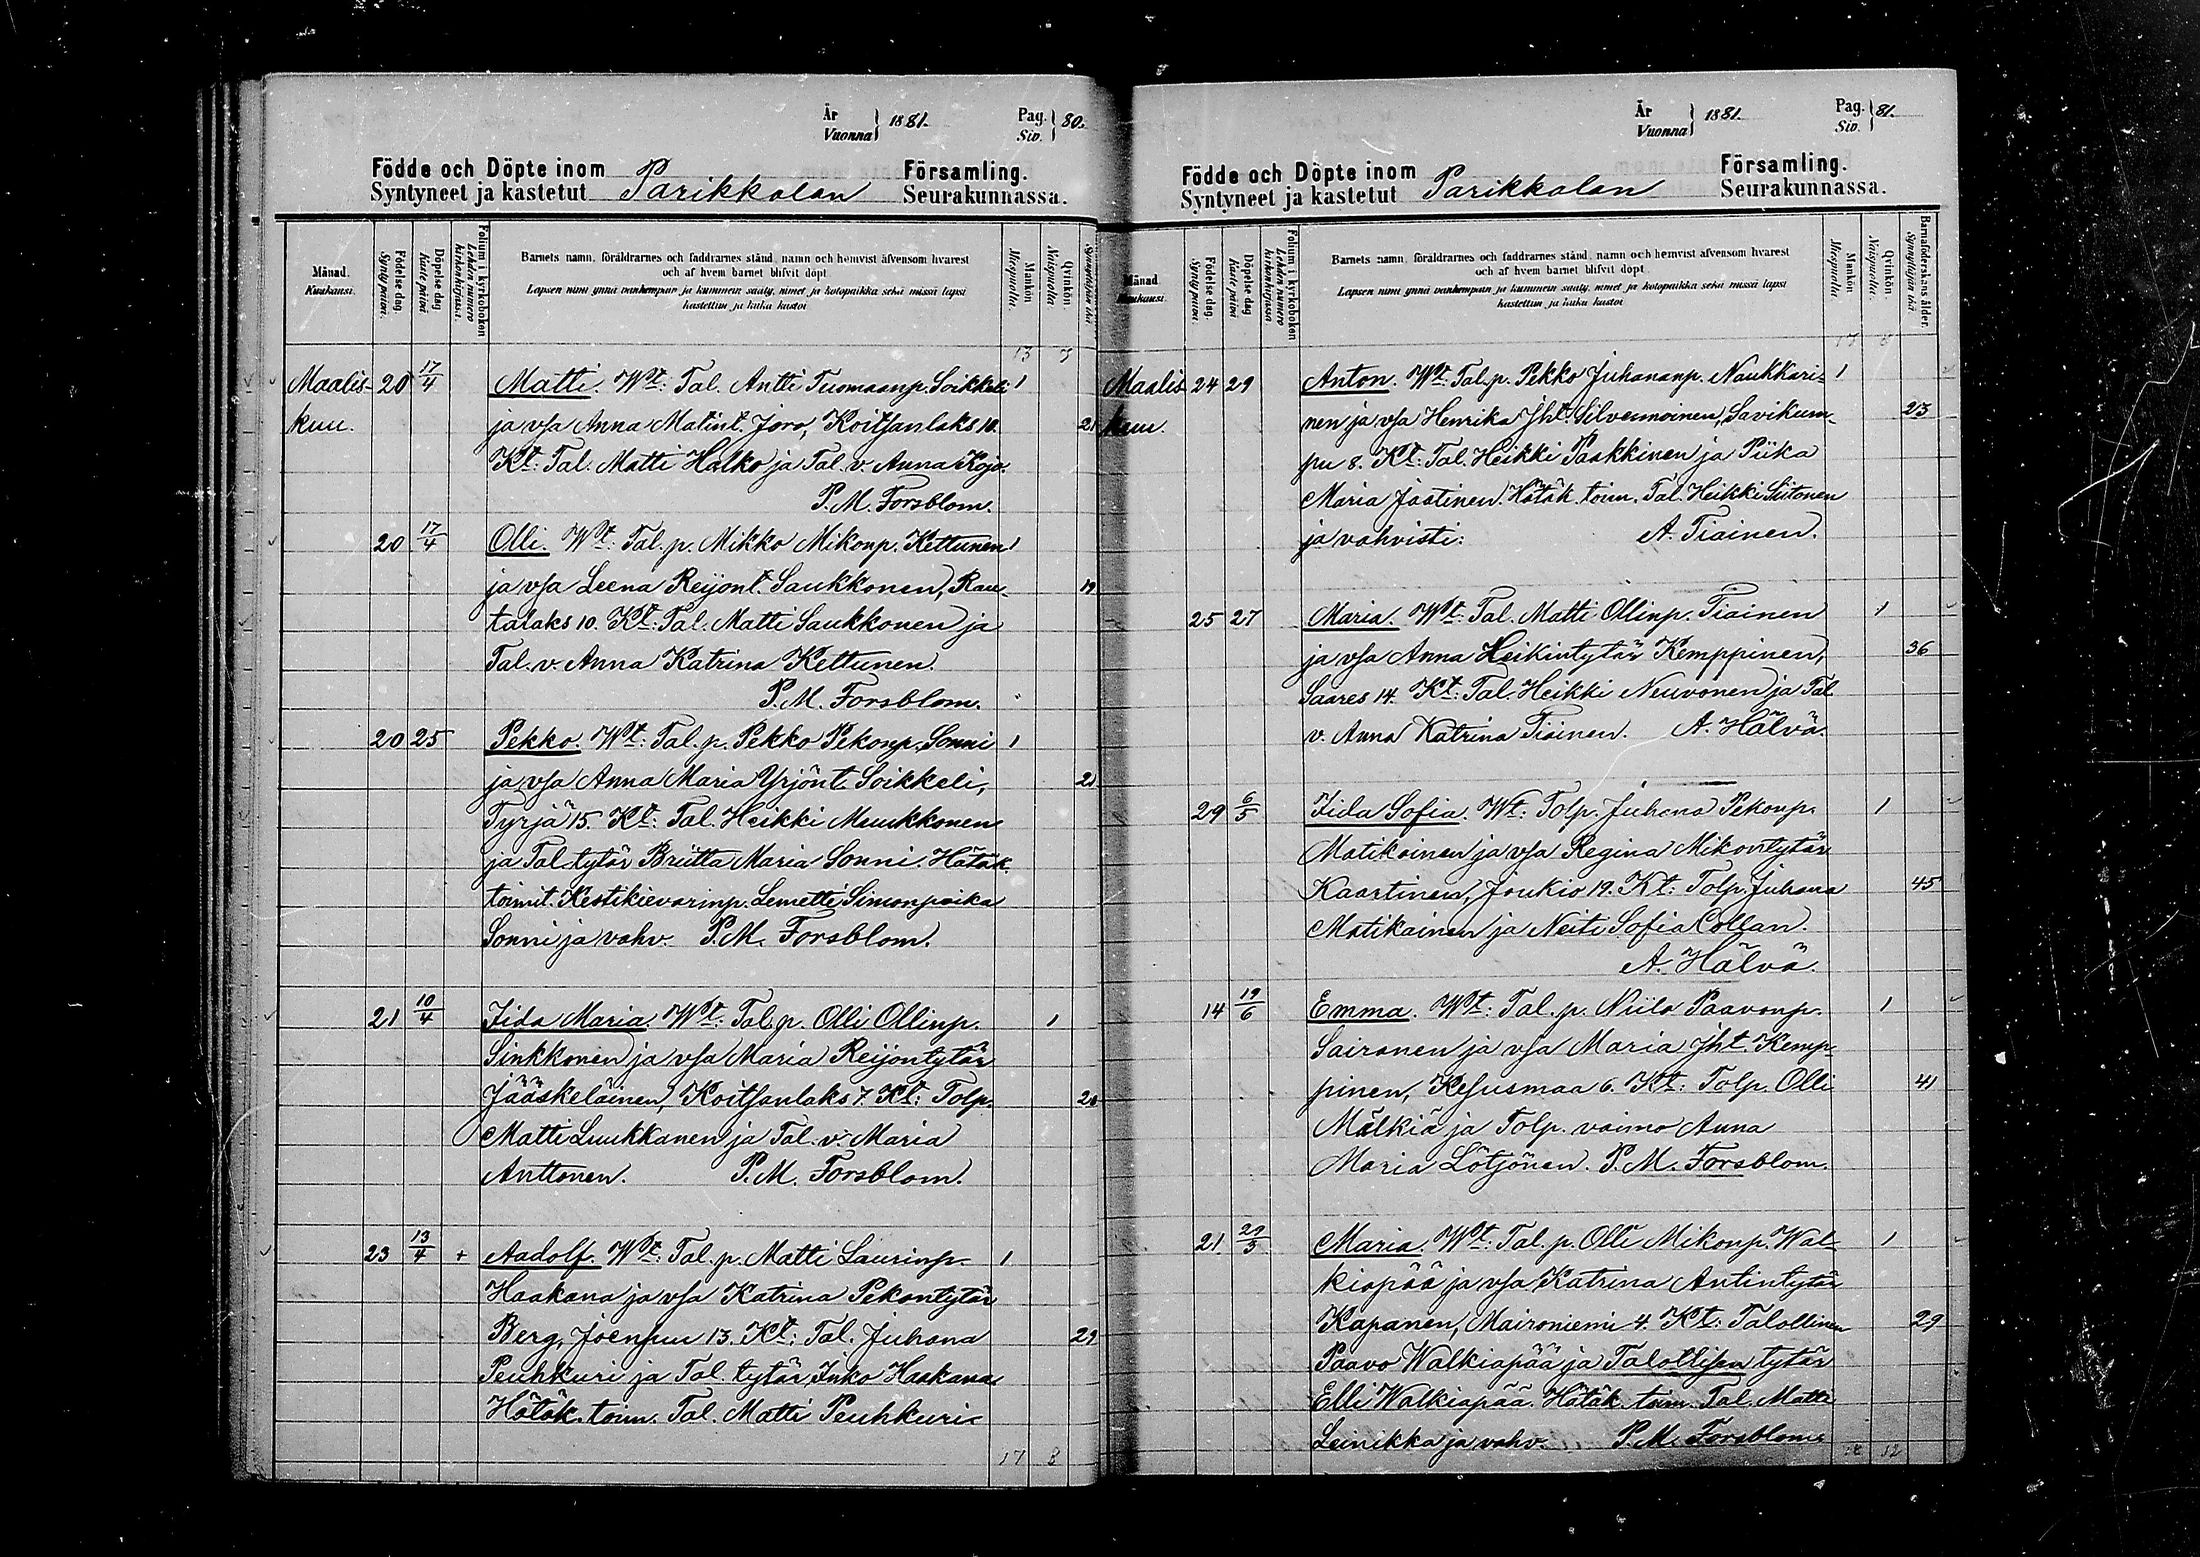 År
Vuonna } 1881.
Pag.
Siv. } 80.
Födde och Döpte inom Parikkalan Församling.
Syntyneet ja kastetut Seurakunnassa.
Månad. Kuukausi.
Födelse dag. Synty päivä.
Döpelse dag Kaste päivä
Folium i kyrkoboken Lehden numero kirkonkirjassa.
Barnets namn, föräldrarnes och faddrarnes stånd, namn och hemvist äfvensom hvarest
och af hvem barnet blifvit döpt.
Lapsen nimi ynnä vanhempain ja kummein sääty, nimet ja kotopaikka sekä missä lapsi
kastettiin ja kuka kastoi
Mankön Miespuolia
Qvinkön. Naispuolia.
13 7
Maalis- 20 17/4 Matti. Wt: Tal. Antti Tuomaanp. Soikkeli 1
kuu. ja vsa Anna Matint. Joro, Koitsanlaks 10. 21
Kt: Tal. Matti Halko ja Tal. v. Anna Kojo.
P. M. Forsblom.
20 17/4 Olli. Wt: Tal. p. Mikko Mikonp. Kettunen 1
ja vsa Leena Reijont. Saukkonen, Rau- 19
talaks 10. Kt: Tal. Matti Saukkonen ja
Tal. v. Anna Katrina Kettunen.
P. M. Forsblom.
20 25 Pekko. Wt: Tal. p. Pekko Pekonp. Sonni 1
ja vsa Anna Maria Yrjönt. Soikkeli, 21
Tyrjä 15. Kt: Tal. Heikki Muukkonen
ja Tal. tytär Briitta Maria Sonni. Hätäk.
toimit. Kestikievarinp. Lemetti Simonpoika
Sonni ja vahv. P. M. Forsblom.
21 10/4 Iida Maria. Wt: Tal. p. Olli Ollinp. 1
Sinkkonen ja vsa Maria Reijontytär
Jääskeläinen, Koitsanlaks 7. Kt: Tolp.
Matti Luukkanen ja Tal. v. Maria
Anttonen. P. M. Forsblom.
23 13/4 + Aadolf. Wt: Tal. p. Matti Laurinp. 1
Haakana ja vsa Katrina Pekontytär
Berg, Joenpuu 13. Kt: Tal. Juhana 29
Peuhkuri ja Tal. tytär Inko Haakana
Hätäk. toim. Tal. Matti Peuhkuri
17 8
År
Vuonna } 1881.
Pag.
Siv. } 81.
Födde och Döpte inom Parikkalan Församling.
Syntyneet ja kastetut Seurakunnassa.
Månad Kuukausi.
Födelse dag. Synty päivä.
Döpelse dag Kaste päivä
Folium i kyrkoboken Lehden numero kirkonkirjassa
Barnets namn, föräldrarnes och faddrarnes stånd, namn och hemvist äfvensom hvarest
och af hvem barnet blifvit döpt.
Lapsen nimi ynnä vanhempain ja kummein sääty, nimet ja kotopaikka sekä missä lapsi
kastettiin ja kuka kastoi
Mankön Miespuolia
Qvinkön. Naispuolia.
Barnaföderskans ålder. Synnyttäjän ikä
17 8
Maalis 24 29 Anton. Wt: Tal. p. Pekko Juhananp. Naukkari- 1
kuu. nen ja vsa Henrika Jht. Silvennoinen, Savikum- 23
pu 8. Kt: Tal. Heikki Paakkinen ja Piika
Maria Jaatinen. Hätäk. toim. Tal. Heikki Siitonen
ja vahvisti: A. Tiainen.
25 27 Maria. Wt: Tal. Matti Ollinp. Tiainen 1
ja vsa Anna Heikintytär Kemppinen, 36
Saares 14. Kt: Tal. Heikki Neuvonen ja Tal.
v. Anna Katrina Tiainen. A. Hälvä.
29 6/5 Iida Sofia. Wt: Tolp. Juhana Pekonp. 1
Matikainen ja vsa Regina Mikontytär
Kaartinen, Joukio 19. Kt: Tolp. Juhana 45
Matikainen ja Neiti Sofia Collan.
A. Hälvä.
14 19/6 Emma. Wt: Tal. p. Niilo Paavonp. 1
Sairanen ja vsa Maria Jht. Kemp-
pinen, Kesusmaa 6. Kt: Tolp. Olli 41
Mälkiä ja Tolp. vaimo Anna
Maria Lötjönen. P. M. Forsblom.
21 29/5 Maria. Wt: Tal. p. Olli Mikonp. Wal- 1
kiapää ja vsa Katrina Antintytär
Kapanen, Maironiemi 4. Kt: Talollinen 29
Paavo Walkiapää ja Talollisen tytär
Elli Walkiapää. Hätäk. toim. Tal. Matti
Leinikka ja vahv. P. M. Forsblom.
18 12